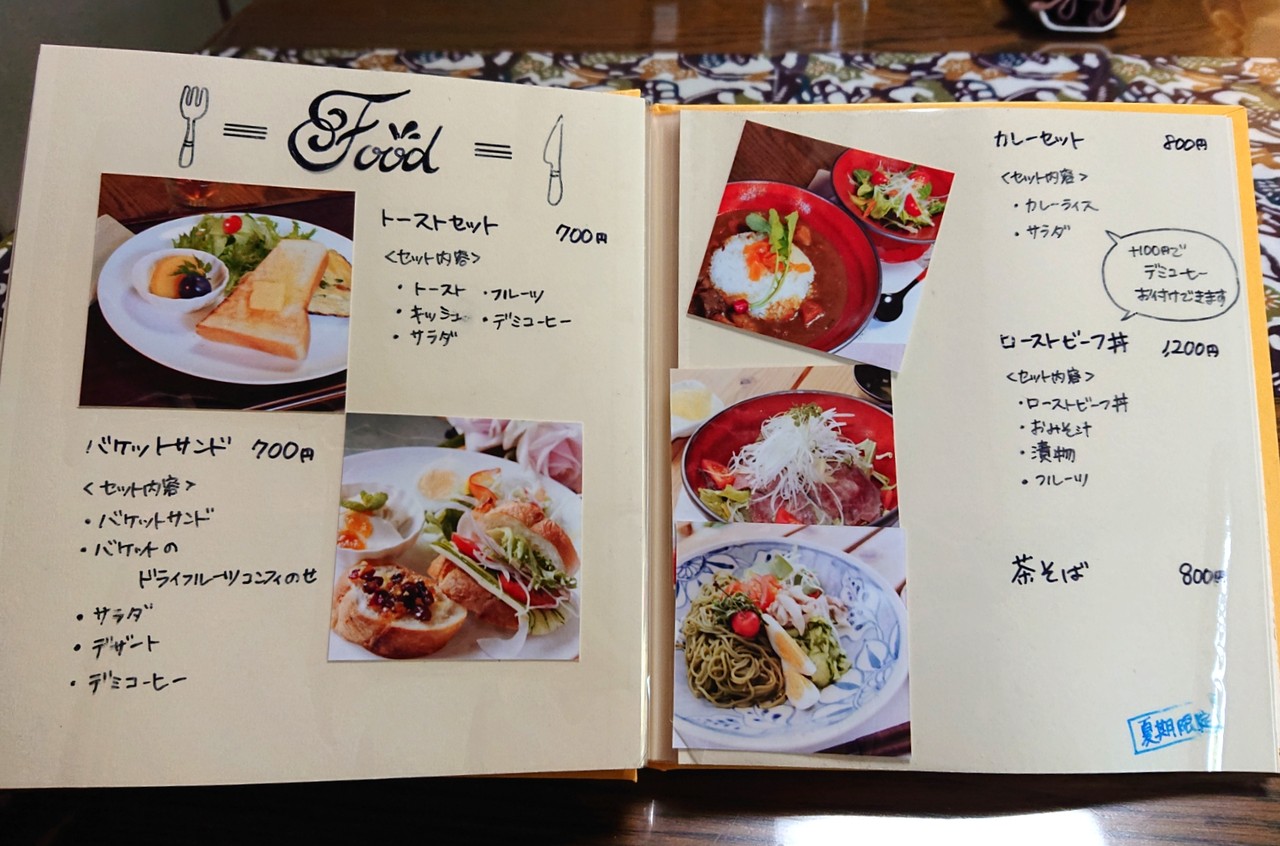 Food
トーストセット 700円
<セット内容>
・トースト ・フルーツ
・キッシュ ・デミコーヒー
・サラダ
バケットサンド 700円
<セット内容>
・バケットサンド
・バケットの
ドライフルーツコンフィのせ
・サラダ
・デザート
・デミコーヒー
カレーセット 800円
<セット内容>
・カレーライス
・サラダ
+100円で
デミコーヒー
お付けできます
ローストビーフ丼 1,200円
<セット内容>
・ローストビーフ丼
・おみそ汁
・漬物
・フルーツ
茶そば 800円
夏期限定